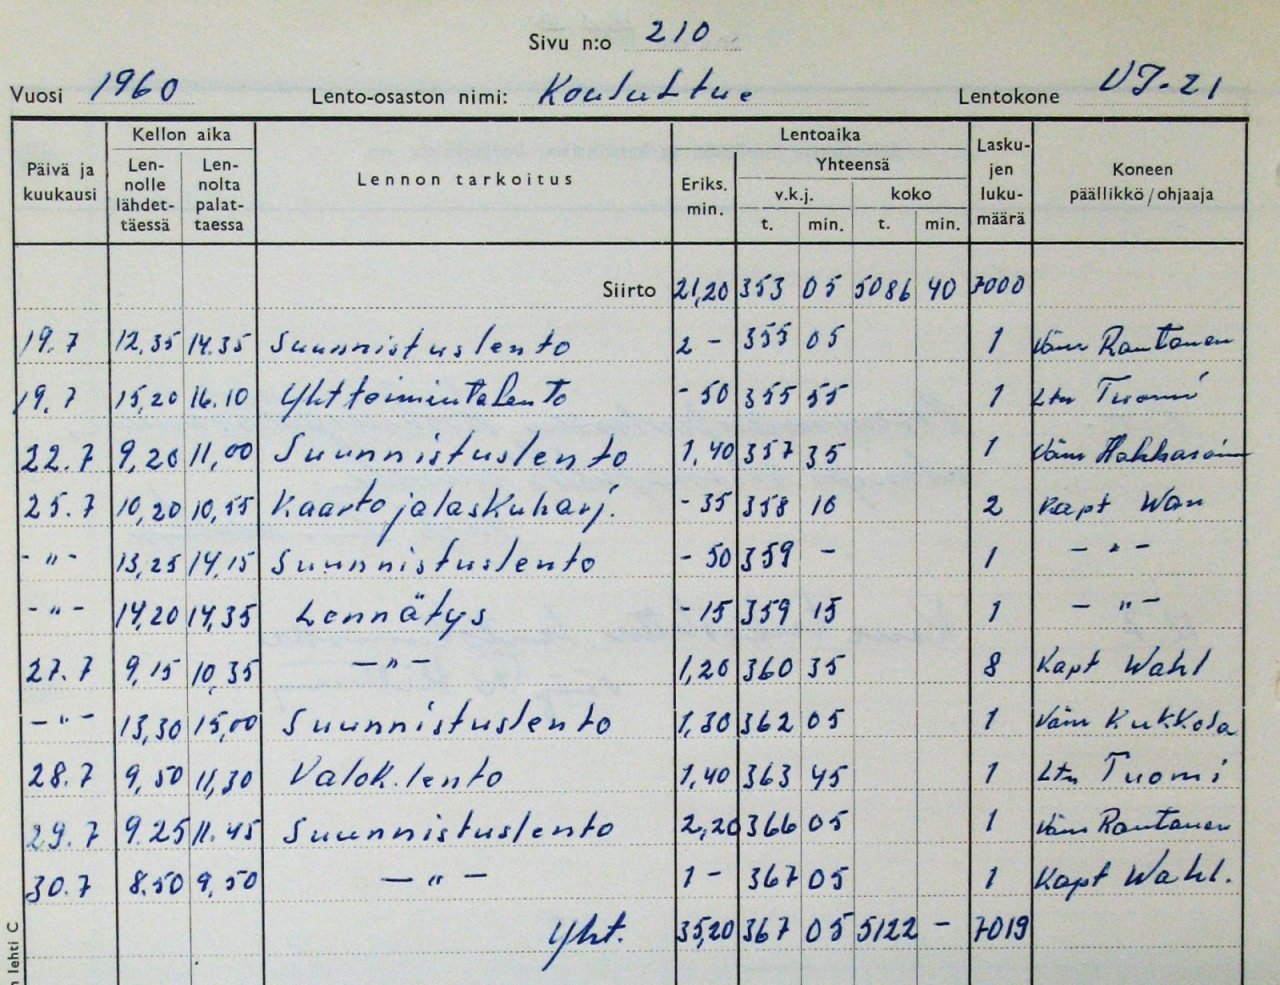 Sivu n:o 210
Vuosi 1960 Lento-osaston nimi: Lentokone VJ-21
Päivä ja kuukausi Kellon aika Lennolle lähdettäessä Lennolta palattaessa Lennon tarkoitus Lentoaika Eriks. min. Yhteensä v.k.j. t. min. koko t. min. Laskujen lukumäärä Koneen päällikkö / ohjaaja
Siirto 21,20 353 05 5086 40 7000
19.7 12.35 14.35 Suunnistuslento 2 - 355 05 1 Vänr Rautanen
19.7 15,20 16.10 Yhttoimintalento - 50 355 55 1 Ltn Tuomi
22.7 9,20 11,00 Suunnistuslento 1,40 357 35 1 Vänr
25.7 10,20 10,55 Kaarto ja laskuharj. - 35 358 10 2 Kapt
- " - 13,25 14,15 Suunnistuslento - 50 359 - 1 - " -
- " - 14,20 14,35 Lennätys - 15 359 15 1 - " -
27.7 9,15 10,35 - " - 1,20 360 35 8 Kapt Wahl
- " - 13,30 15,00 Suunnistuslento 1,30 362 05 1 Vänr Kukkola
28.7 9,50 11,30 Valok.lento 1,40 363 45 1 Ltn Tuomi
29.7 9.25 11.45 Suunnistuslento 2,20 366 05 1 Vänr Rautanen
30.7 8.50 9,50 - " - 1 - 367 05 1 Kapt Wahl.
Yht. 35,20 367 05 5122 - 7019
n lehti C